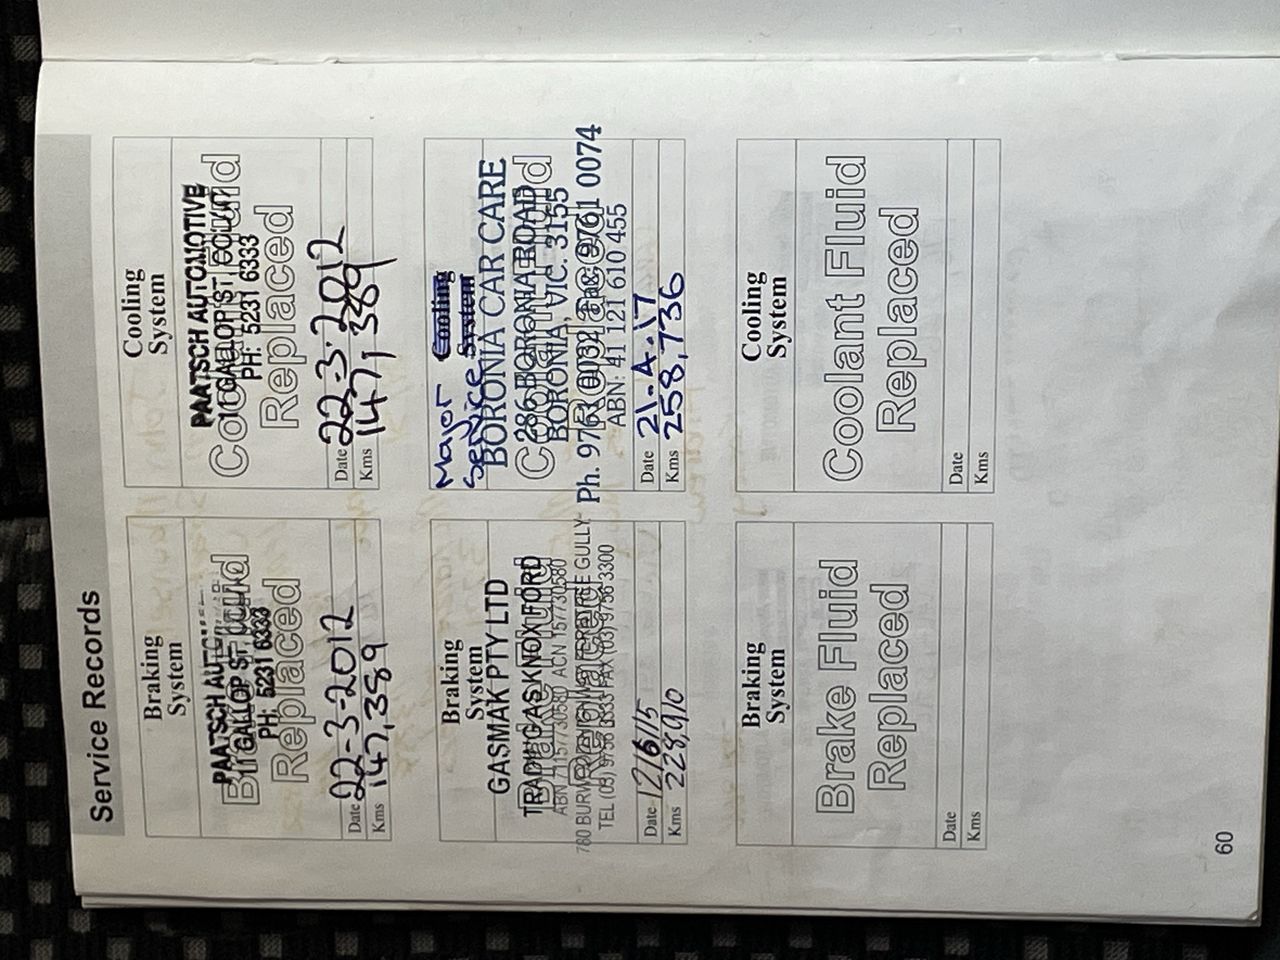 Service Records
Braking
System
PAATSCH AUTO
GALLOP ST, COLAC
PH: 5231 6333
Brake Fluid
Replaced
Date 22-3-2012
Kms 147,389
Cooling
System
PAATSCH AUTOMOTIVE
GALLOP ST,
PH: 5231 6333
Coolant Fluid
Replaced
Date 22.3.2012
Kms 147,389
Braking
System
GASMAK PTY LTD
TRADING AS KNOX FORD
ABN 71157730580 ACN 157730580
780 BURWOOD HIGHWAY FERNTREE GULLY
TEL (03) 9756 3333 FAX (03) 9756 3300
Brake Fluid
Replaced
Date 12/6/15
Kms 228,910
Major Cooling
Service System
BORONIA CAR CARE
286 BORONIA ROAD
BORONIA, VIC. 3155
Ph. 9762 0032 Fax: 9761 0074
ABN: 41 121 610 455
Coolant Fluid
Replaced
Date 21.4.17
Kms 258,736
Braking
System
Brake Fluid
Replaced
Date
Kms
Cooling
System
Coolant Fluid
Replaced
Date
Kms
60